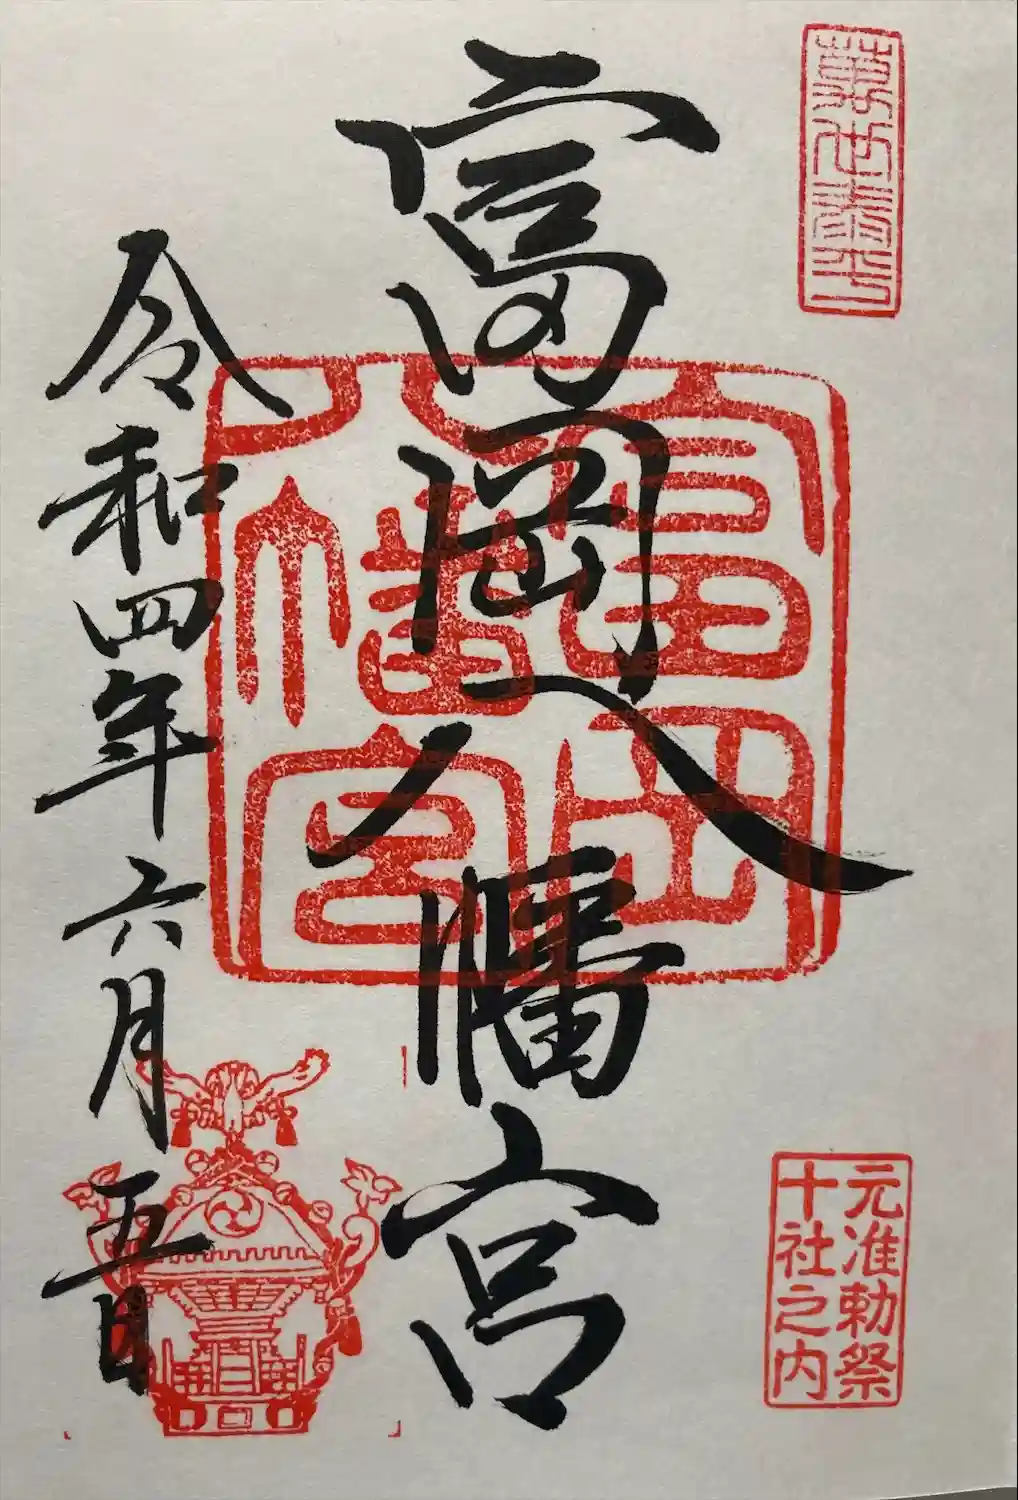 富岡八幡宮
富岡
八幡宮
元准勅祭
十社之内
令和四年六月五日